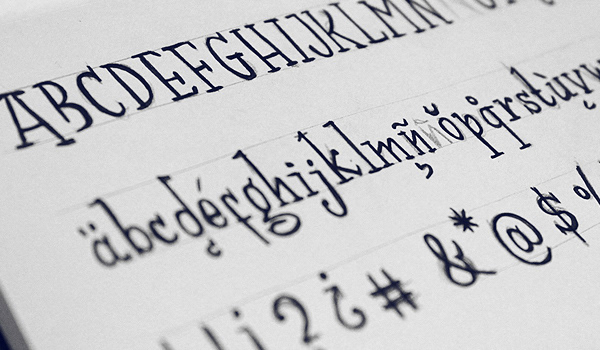 ABCDEFGHIJKLMN
äbcdéfghijklmñŏp̊qrstùv
¡?¿#&*@$%